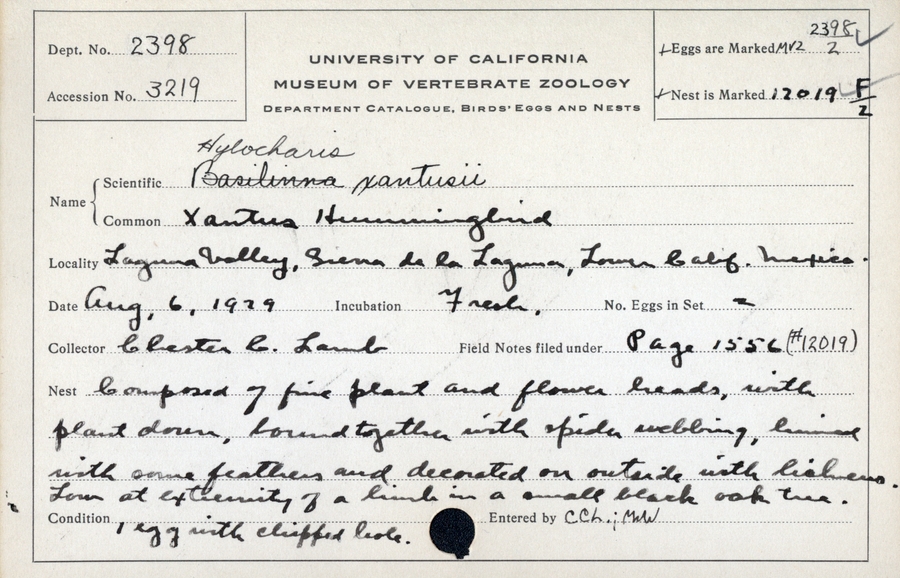 Dept. No. 2398
Accession No. 3219
UNIVERSITY OF CALIFORNIA
MUSEUM OF VERTEBRATE ZOOLOGY
DEPARTMENT CATALOGUE, BIRDS' EGGS AND NESTS
Eggs are Marked MVZ 2398/2
Nest is Marked 12019 F/2
Hylocharis
Name { Scientific Basilinna xantusii
Common Xantus Hummingbird
Locality Laguna Valley, Sierra de la Laguna, Lower Calif. Mexico.
Date Aug, 6, 1929 Incubation Fresh, No. Eggs in Set 2
Collector Chester C. Lamb Field Notes filed under Page 1556 (#12019)
Nest Composed of fine plant and flower heads, with
plant down, bound together with spider webbing, lined
with some feathers and decorated on outside with lichens.
Low at extremity of a limb in a small black oak tree.
Condition 1 egg with chipped hole. Entered by CCL.; MWW